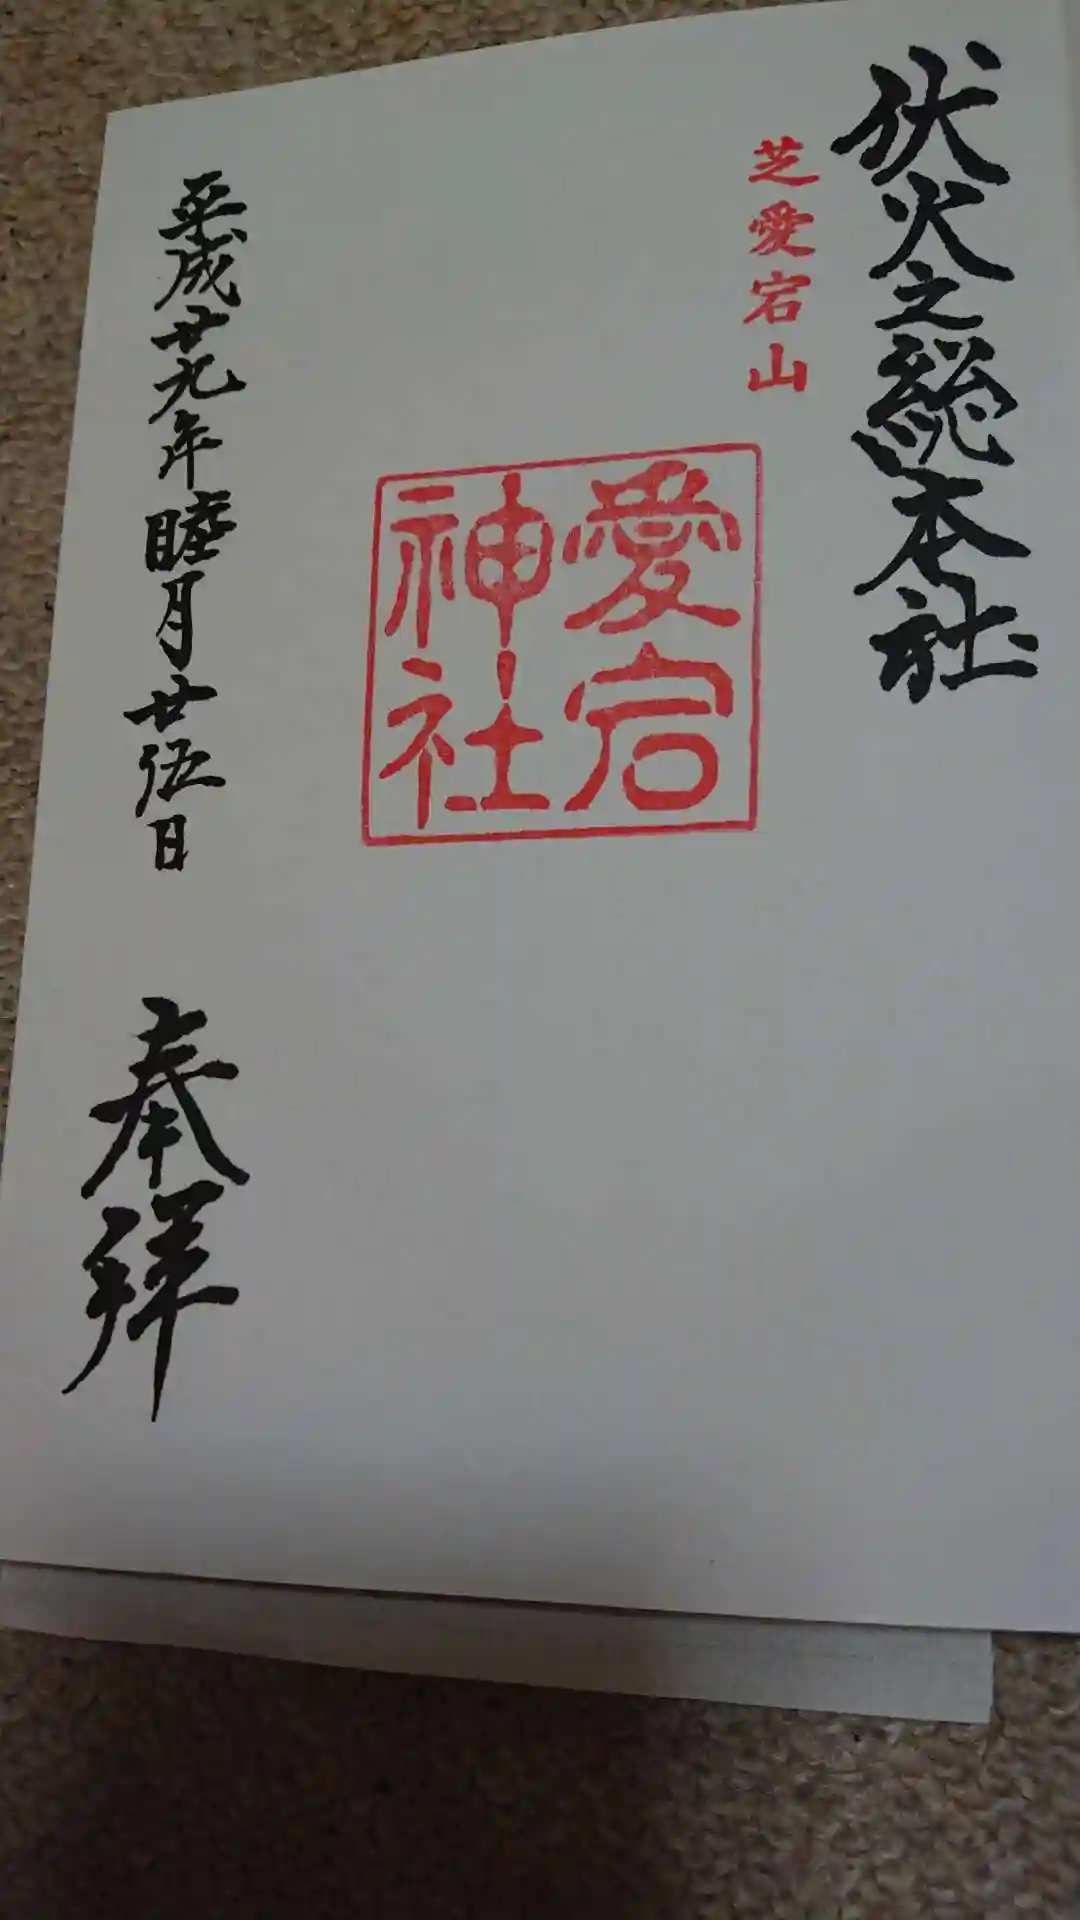 伏火之総本社
芝愛宕山
愛宕
神社
平成廿九年睦月廿伍日
奉拝